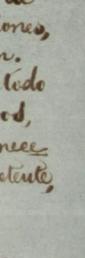 iones,
n.
todo
os,
nece
etente,